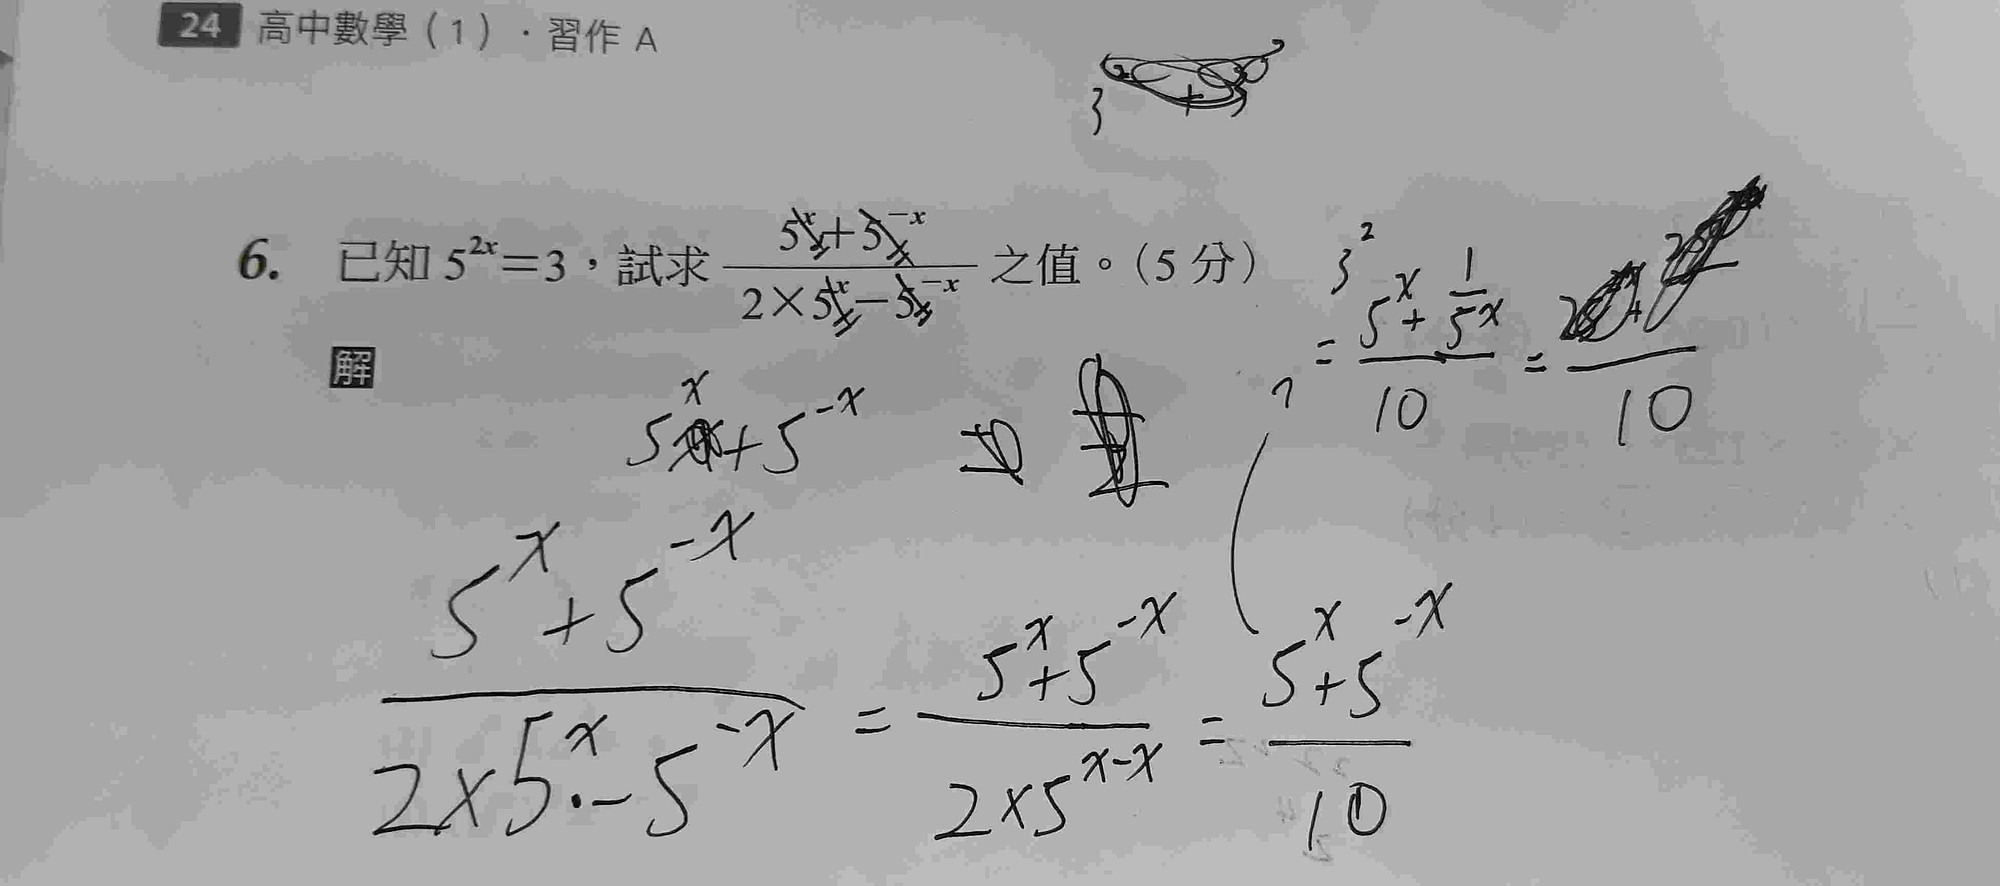 24 高中數學（1）．習作 A
3 +
6. 已知 5^{2x}=3，試求 \frac{5^x+5^{-x}}{2×5^x-5^{-x}} 之值。（5 分）
3^2
= \frac{5^x+\frac{1}{5^x}}{10} = \frac{}{10}
解
5^x+5^{-x}
\frac{5^x+5^{-x}}{2×5^x·-5^{-x}} = \frac{5^x+5^{-x}}{2×5^{x-x}} = \frac{5^x+5^{-x}}{10}